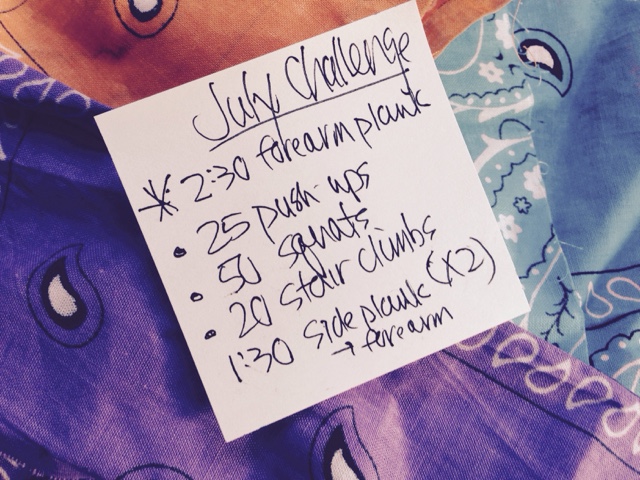 July Challenge
* 2:30 forearm plank
• 25 push-ups
• 50 squats
• 20 stair climbs
1:30 side plank (x2)
→ forearm